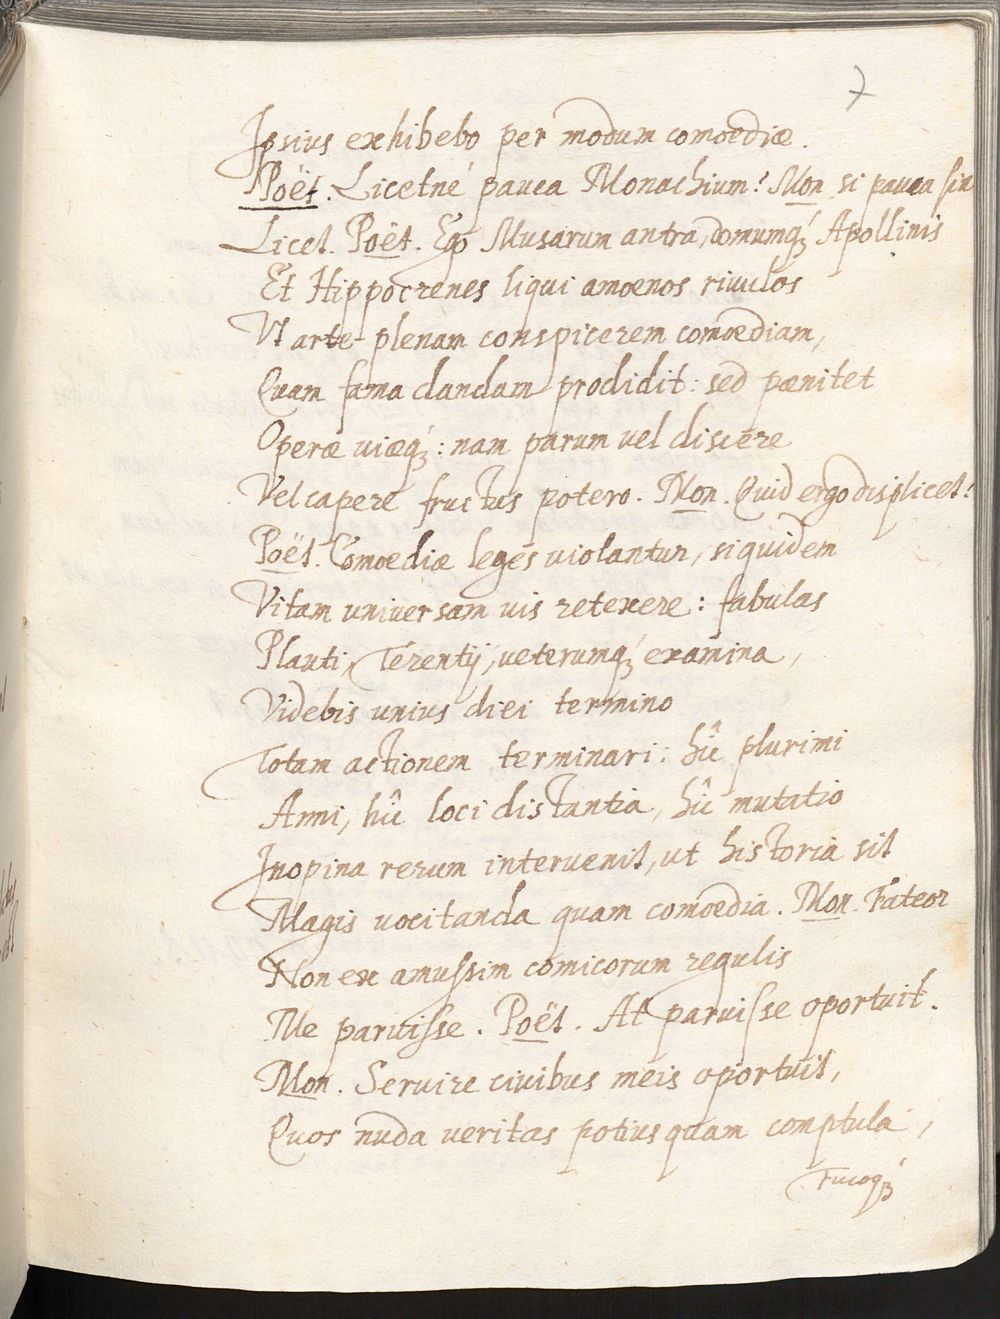 7
Ipsius exhibebo per modum comoediæ.
Poët. Licetné pauca Monachium? Mon. si pauca sin
Licet. Poët. Ego Musarum antra, domumq́ꝫ Apollinis
Et Hippocrenes liqui amoenos riuulos
Vt arte plenam conspicerem comoediam,
Quam fama dandam prodidit: sed pænitet
Operæ uiæq́ꝫ: nam parum uel discere
Vel capere fructus potero. Mon. Quid ergo displicet?
Poët. Comoediæ leges uiolantur, siquidem
Vitam uniuersam uis retexere: fabulas
Plauti, Terentij, ueterumq́ꝫ examina,
Videbis unius diei termino
Totam actionem terminari: hîc plurimi
Anni, hîc loci distantia, hîc mutatio
Inopina rerum interuenit, ut historia sit
Magis uocitanda quam comoedia. Mon. Fateor
Non ex amussim comicorum regulis
Me paruisse. Poët. At paruisse oportuit.
Mon. Seruire ciuibus meis oportuit,
Quos nuda ueritas potius quam comptula,
Fucoq́ꝫ